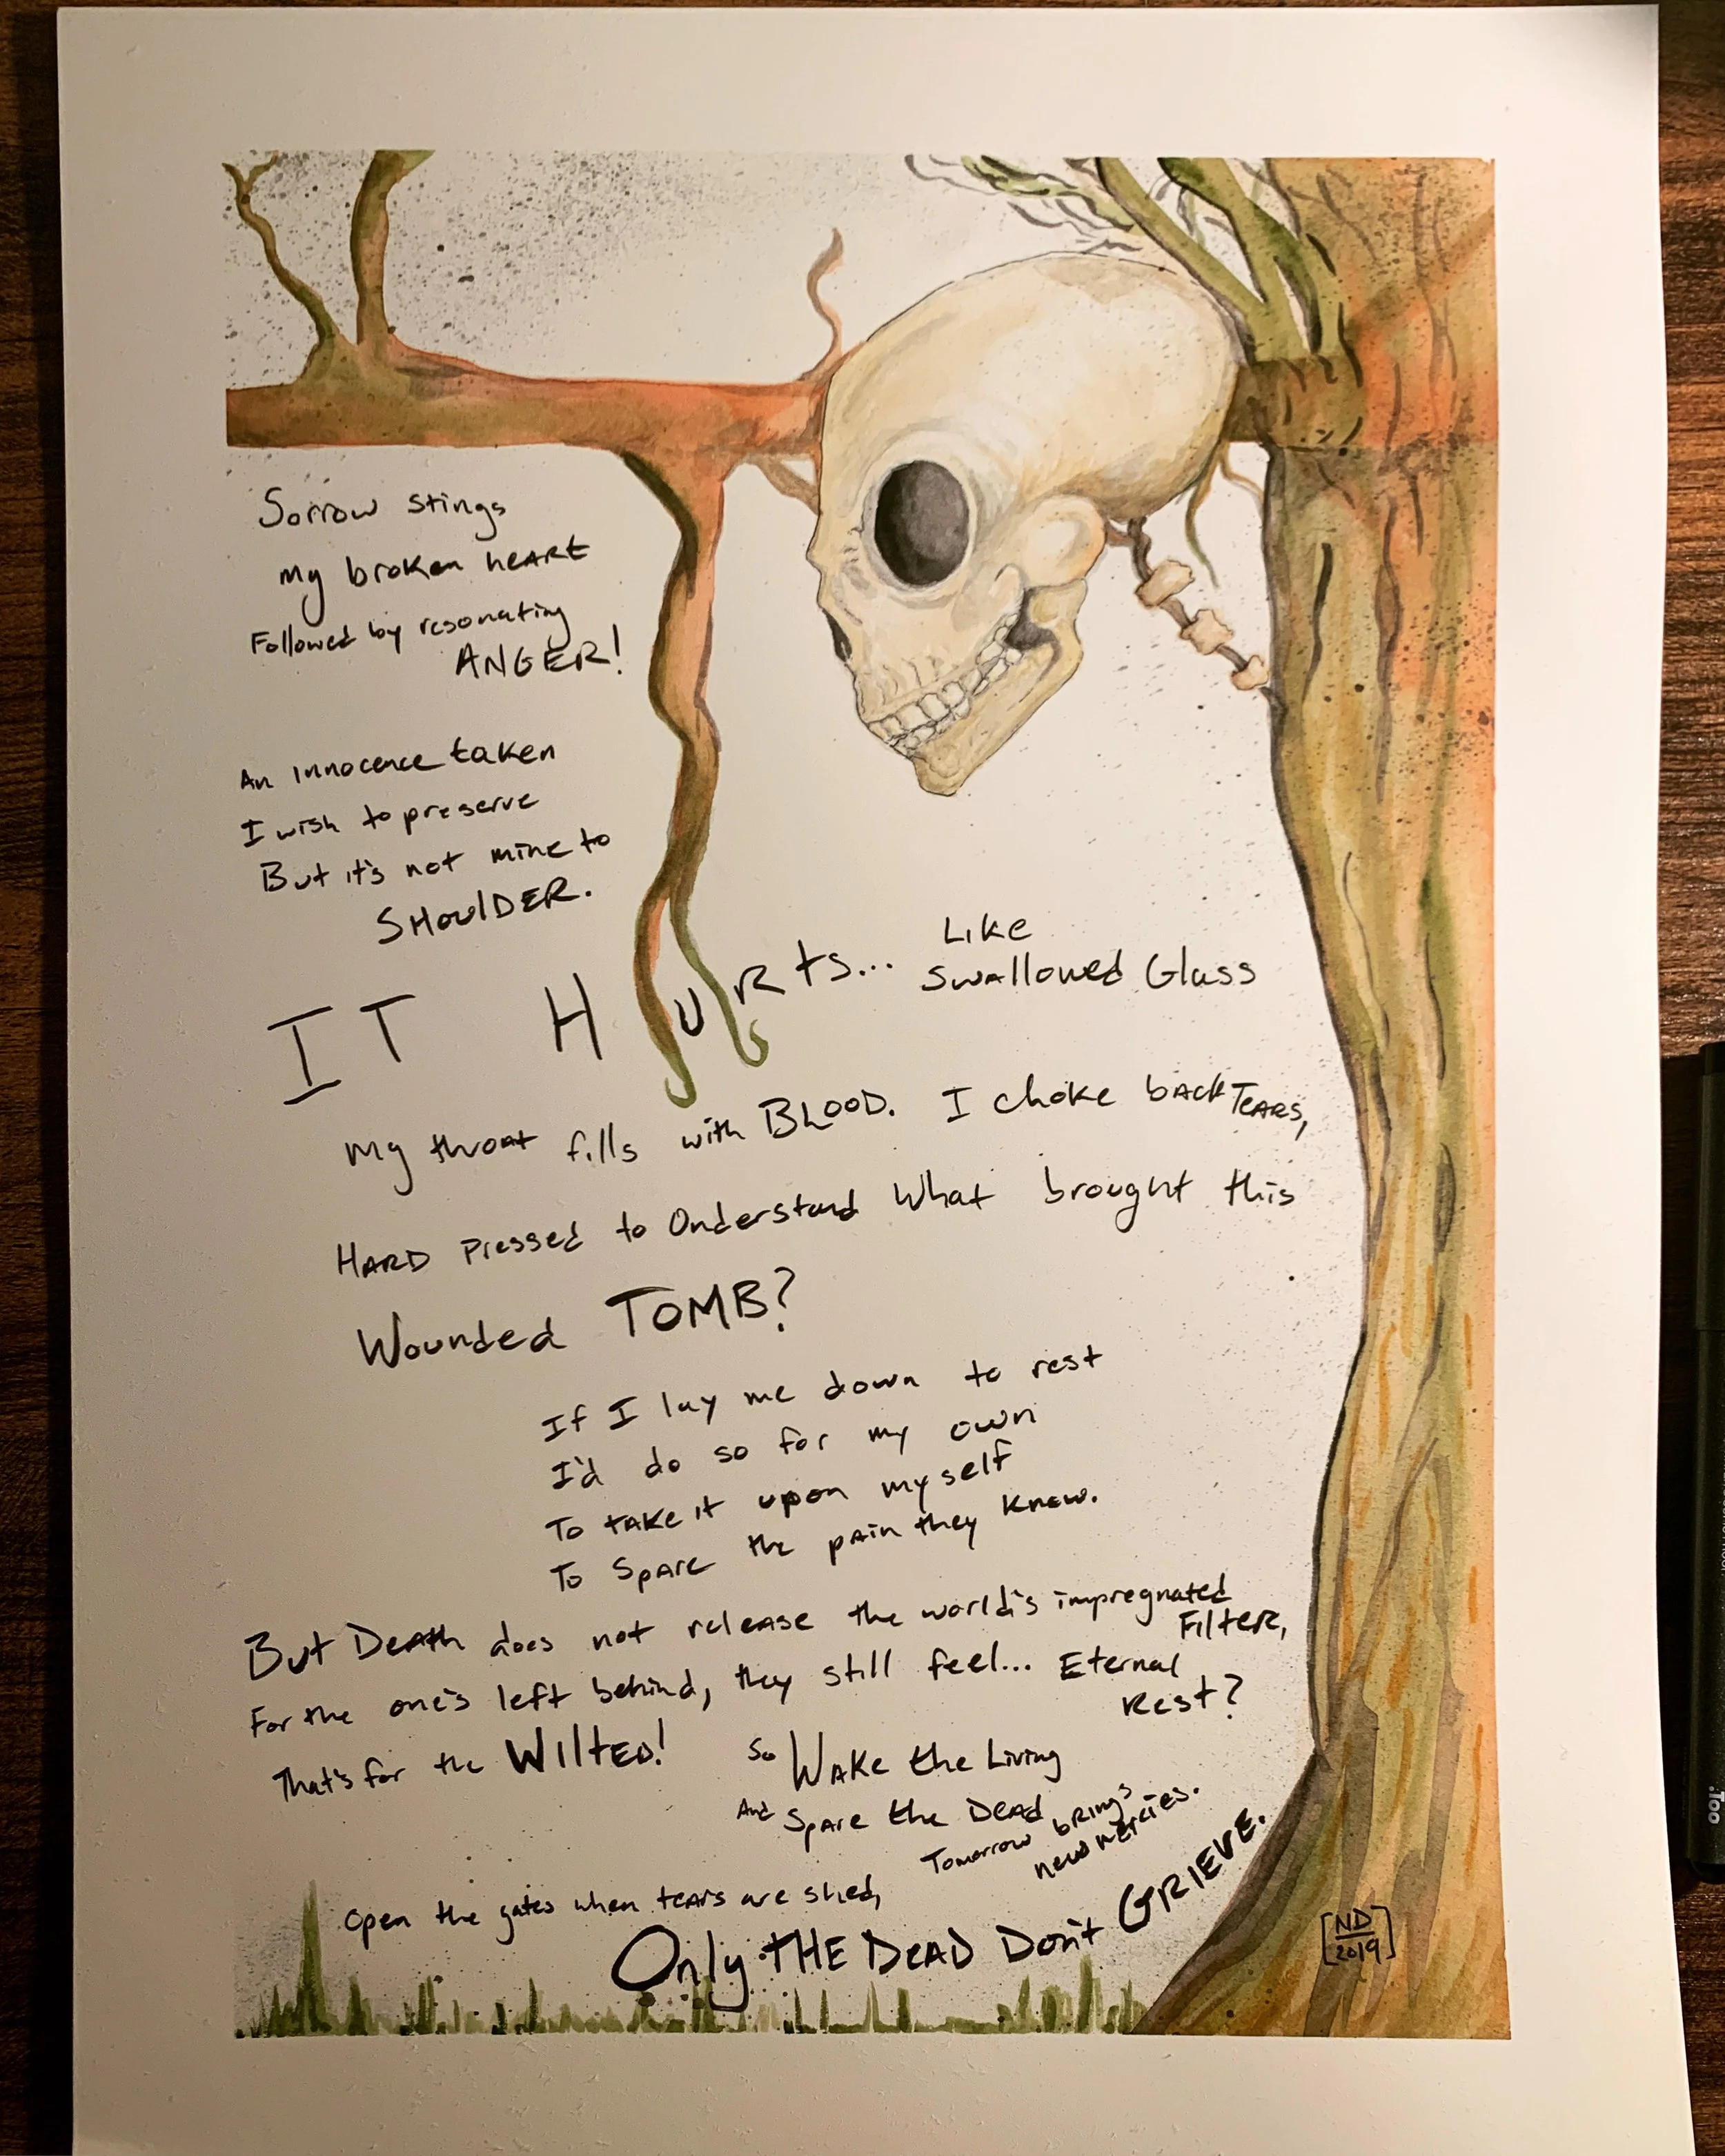 Sorrow stings
my broken heart
Followed by resonating
ANGER!
An innocence taken
I wish to preserve
But it's not mine to
SHOulDER.
IT HURts... Like
Swallowed Glass
My throat fills with BLOOD. I choke back Tears,
HARD pressed to Understand What brought this
Wounded TOMB?
If I lay me down to rest
I'd do so for my own
To take it upon myself
To spare the pain they know.
But Death does not release the world's impregnated
Filter,
For the one's left behind, they still feel... Eternal
Rest?
That's for the WIltED!
So Wake the Living
And Spare the Dead
Tomorrow brings
new mercies.
Open the gates when tears are shed,
Only THE DEAD Don't GRIEVE.
[ND
2019]
Too